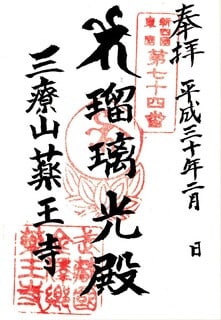 奉拝 平成三十年二月 日
第七十四番
瑠璃光殿
三療山薬王寺